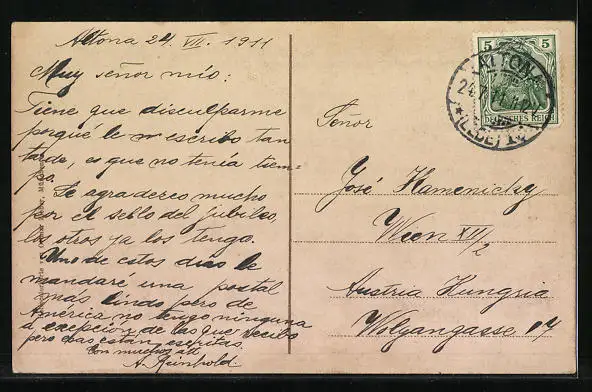 Altona 24. VII. 1911
Muy señor mío:
Tiene que disculparme
porqué le escribo tan
tarde, es que no tenía tiem=
po.
Le agradereo mucho
por el sello del jubileo,
los otros ya los tengo.
Uno de estos dias le
mandaré una postal
mas linda pero de
América no tengo ninguna
á excepcion de las que recibo
pero esas están escritas
con muchos
A. Reinhold
5 5
DEUTSCHES REICH
ALTONA
24.7.11
(ELBE) 1
Señor
José Kamenicky
Wien XII/2
Austria Hungria
Wolfgangasse